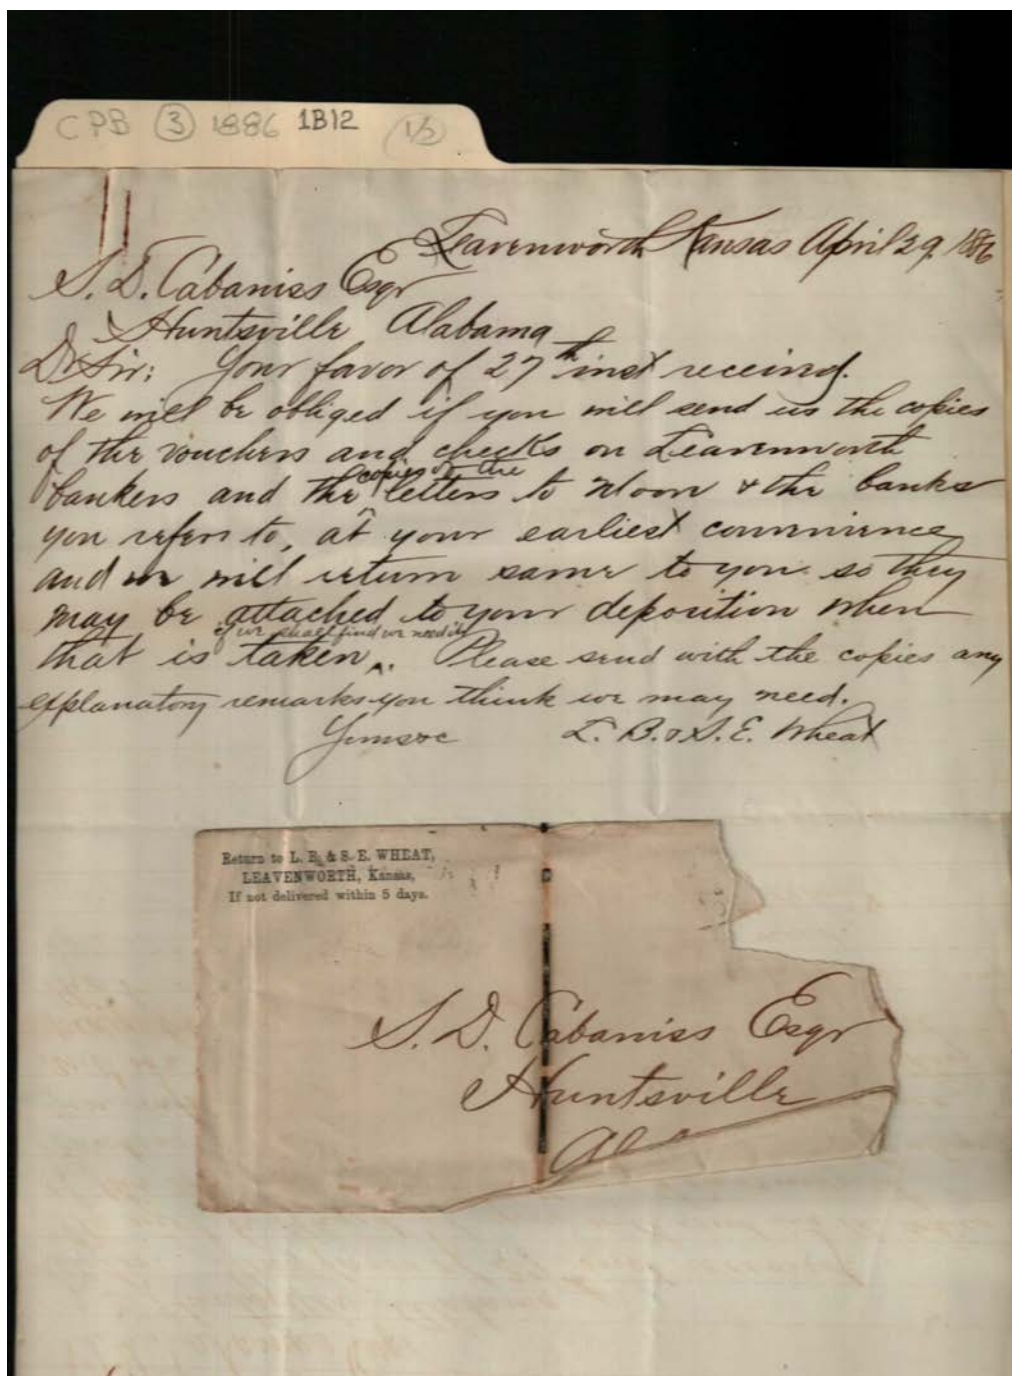 CPB 3 1886 1B12 1/2
Leavenworth Kansas April 29, 1886
S. D. Cabaniss Esqr
Huntsville Alabama
Dr Sir: Your favor of 27th inst received.
We will be obliged if you will send us the copies
of the vouchers and checks on Leavenworth
copies of the
bankers and the letters to Moon & the banks
you refer to, at your earliest convenience
and we will return same to you so they
may be attached to your deposition when
if we shall find we need it
that is taken. Please send with the copies any
explanatory remarks you think we may need.
Yours &c L. B. & S. E. Wheat
Return to L. B. & S. E. WHEAT,
LEAVENWORTH, Kansas,
If not delivered within 5 days.
S. D. Cabaniss Esqr
Huntsville
Ala